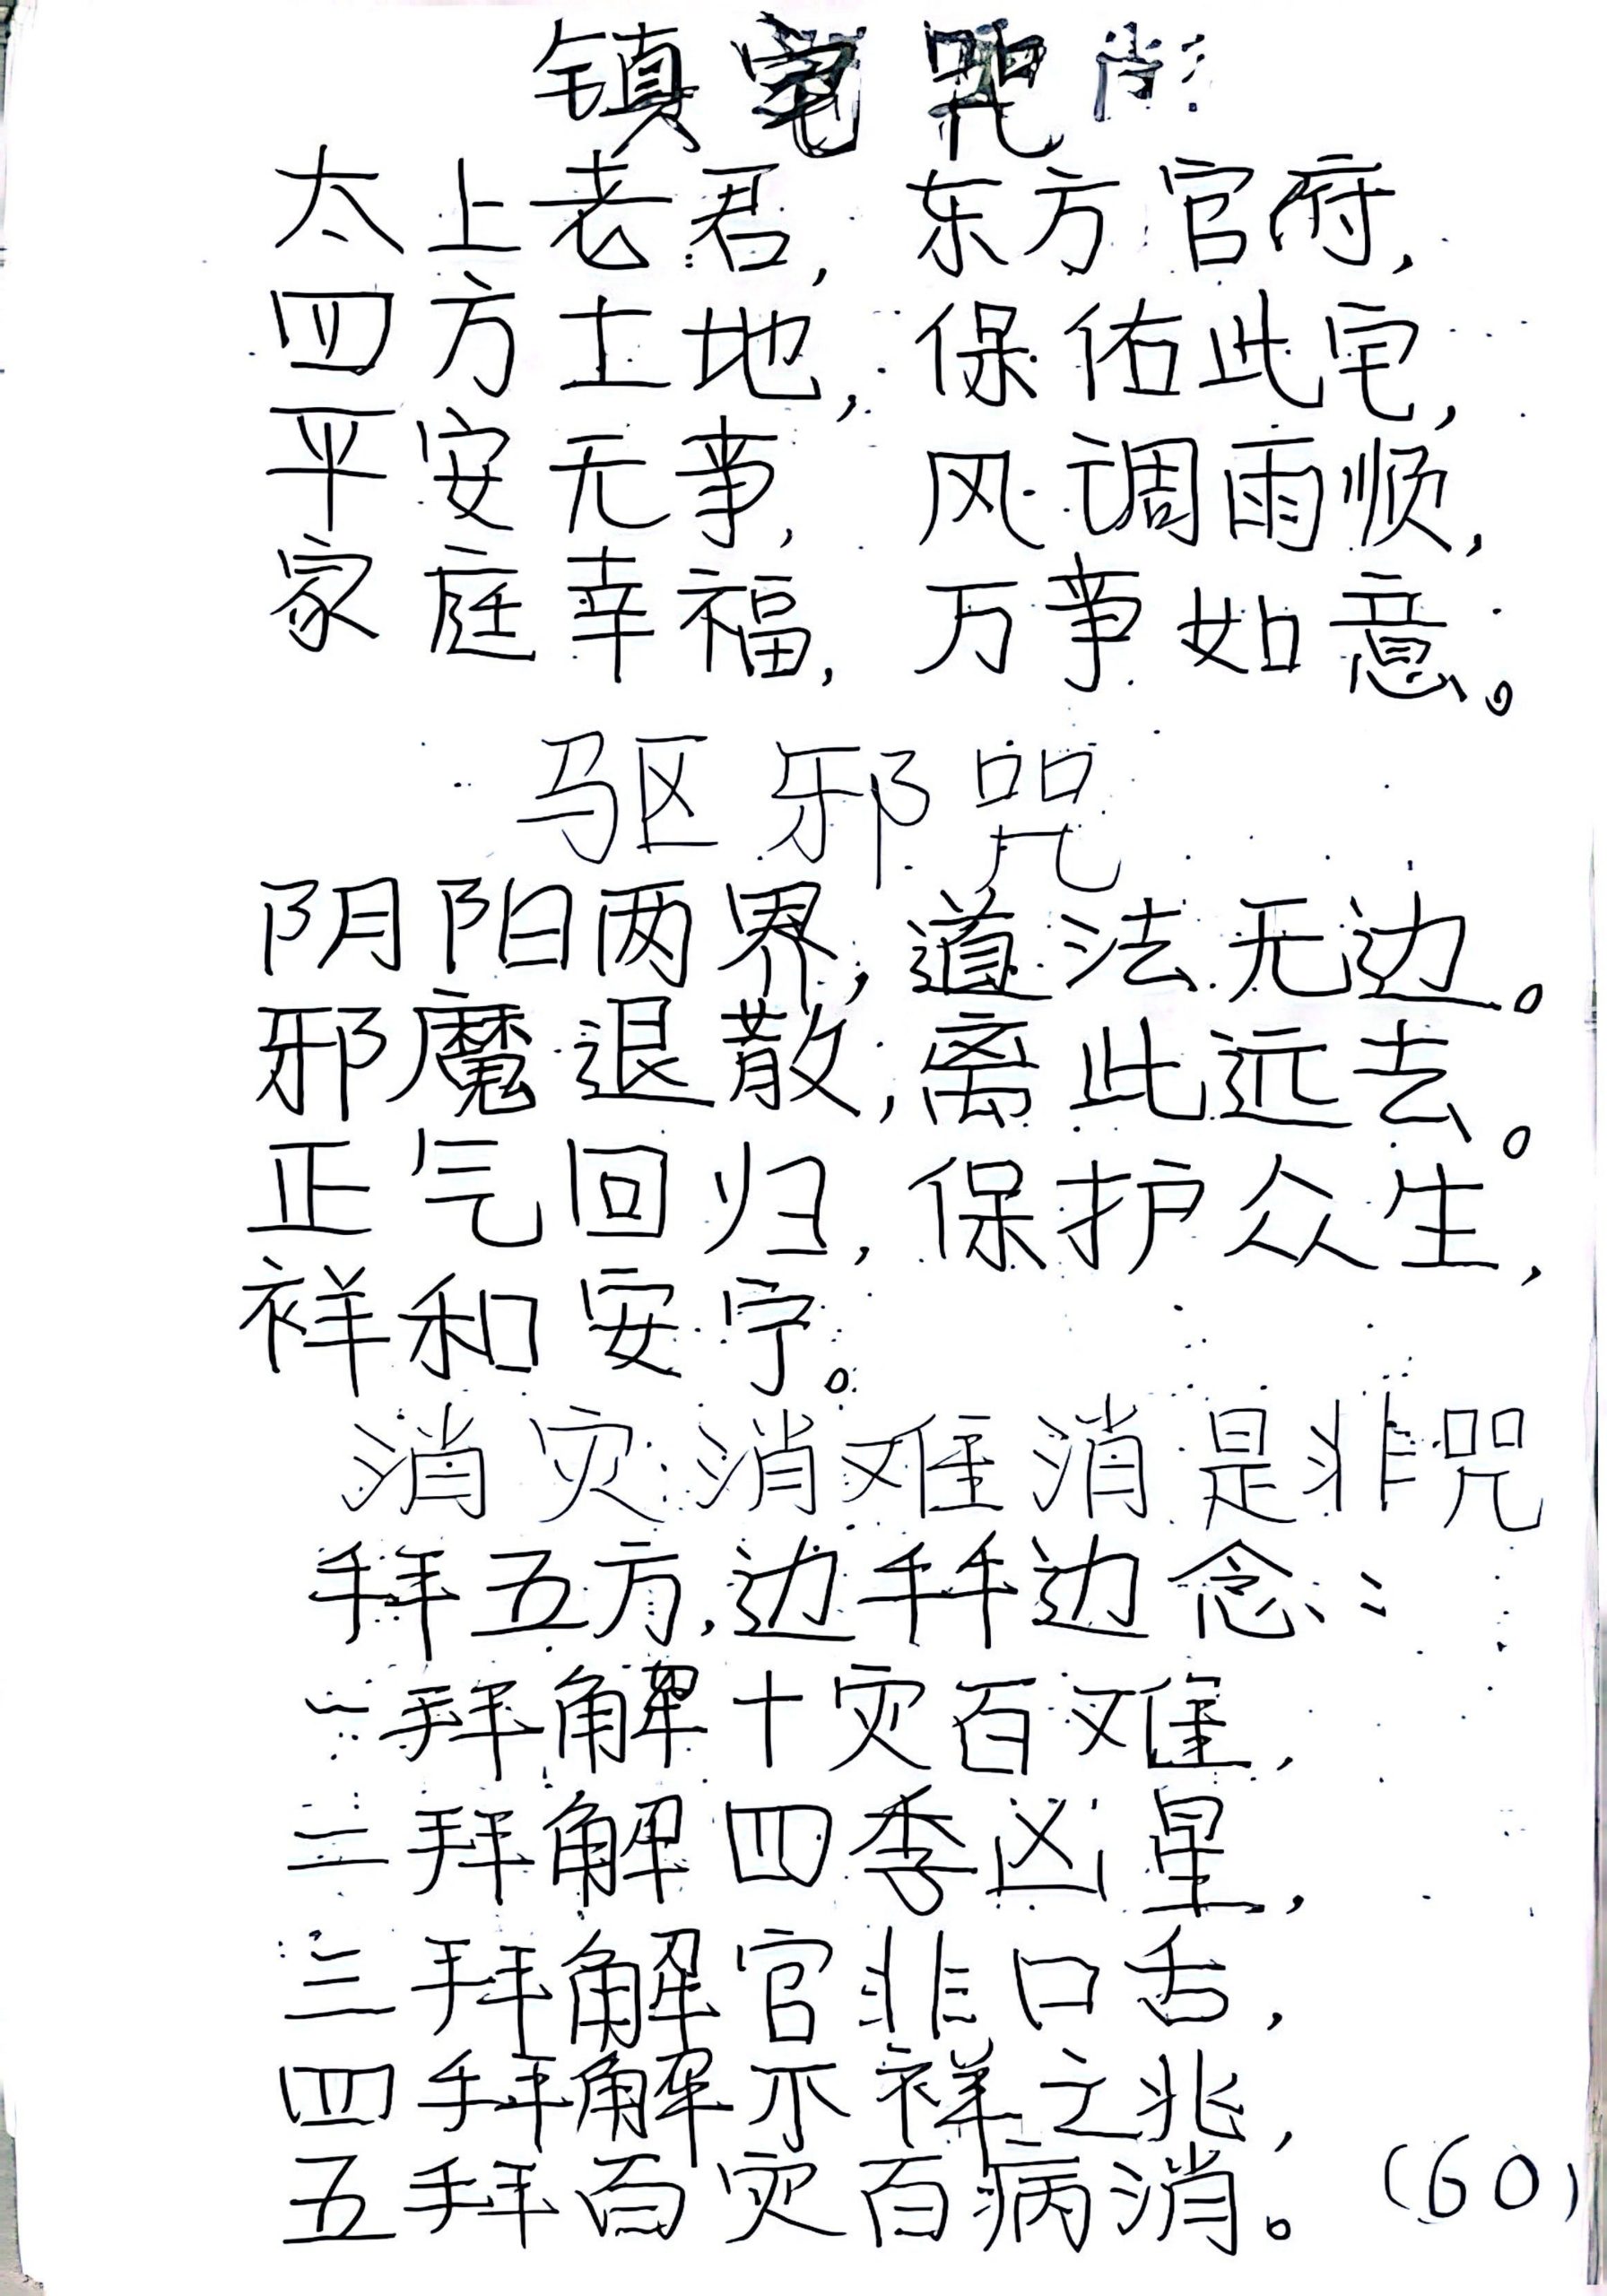 镇宅咒
太上老君，东方官府，
四方土地，保佑此宅，
平安无事，风调雨顺，
家庭幸福，万事如意。
驱邪咒
阴阳两界，道法无边。
邪魔退散，离此远去。
正气回归，保护众生，
祥和安宁。
消灾消难消是非咒
拜五方，边拜边念：
一拜解十灾百难，
二拜解四季凶星，
三拜解官非口舌，
四拜解不祥之兆，
五拜百灾百病消。(60)